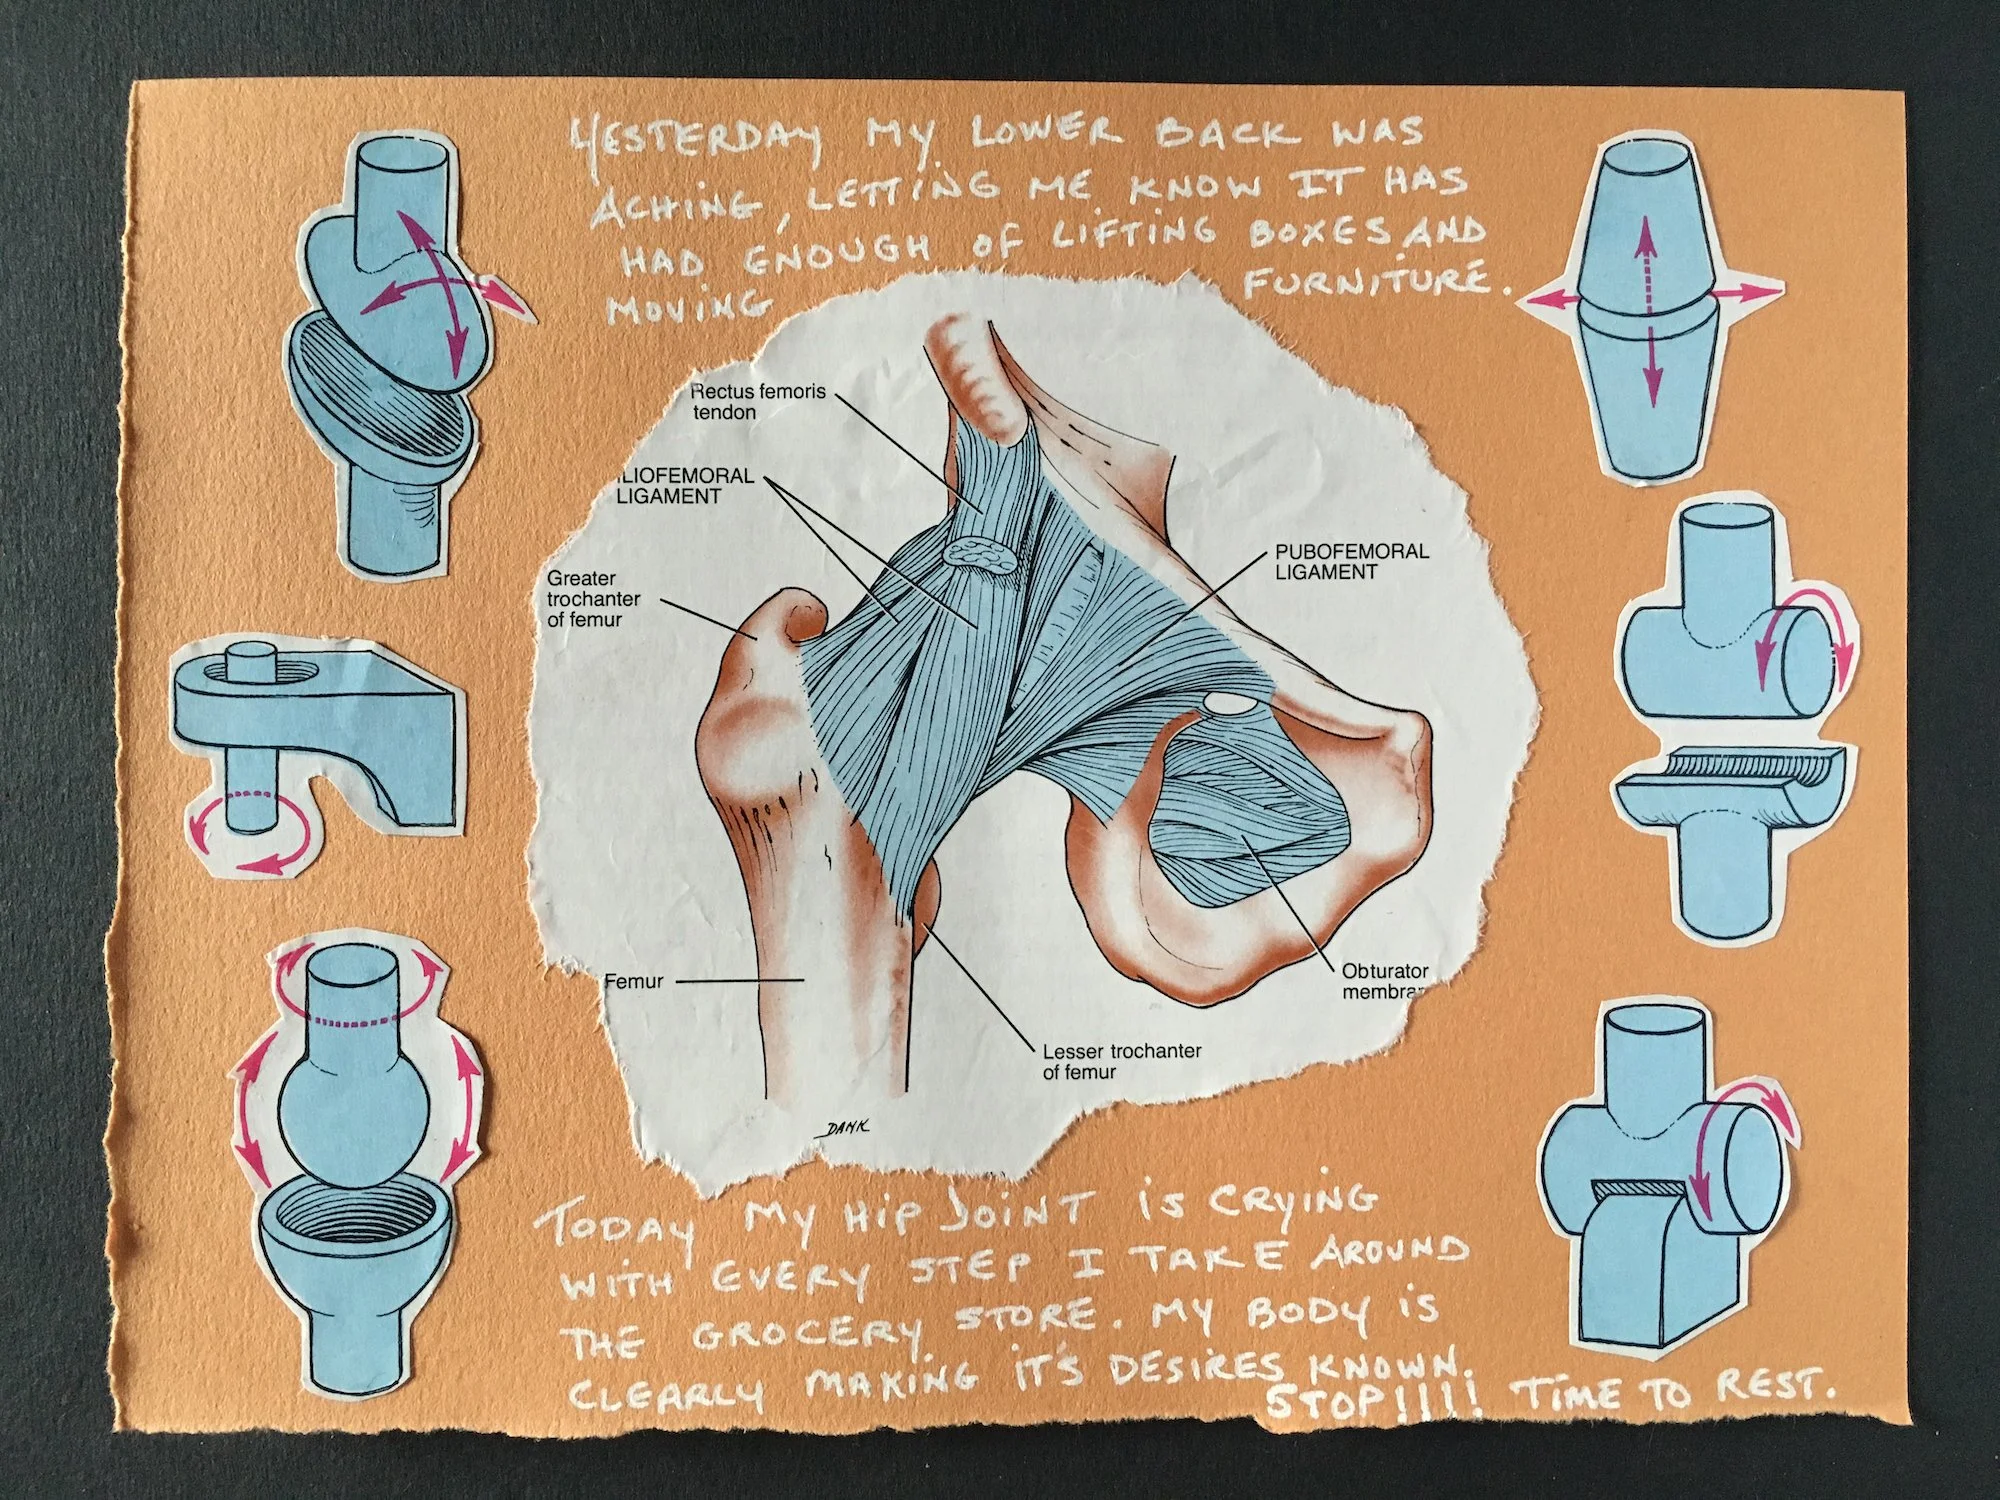 YESTERDAY MY LOWER BACK WAS
ACHING, LETTING ME KNOW IT HAS
HAD ENOUGH OF LIFTING BOXES AND
MOVING FURNITURE.
Rectus femoris
tendon
LIOFEMORAL
LIGAMENT
Greater
trochanter
of femur
PUBOFEMORAL
LIGAMENT
Femur
Obturator
membra
Lesser trochanter
of femur
DANK
TODAY MY HIP JOINT IS CRYING
WITH EVERY STEP I TAKE AROUND
THE GROCERY STORE. MY BODY IS
CLEARLY MAKING IT'S DESIRES KNOWN.
STOP!!!! TIME TO REST.